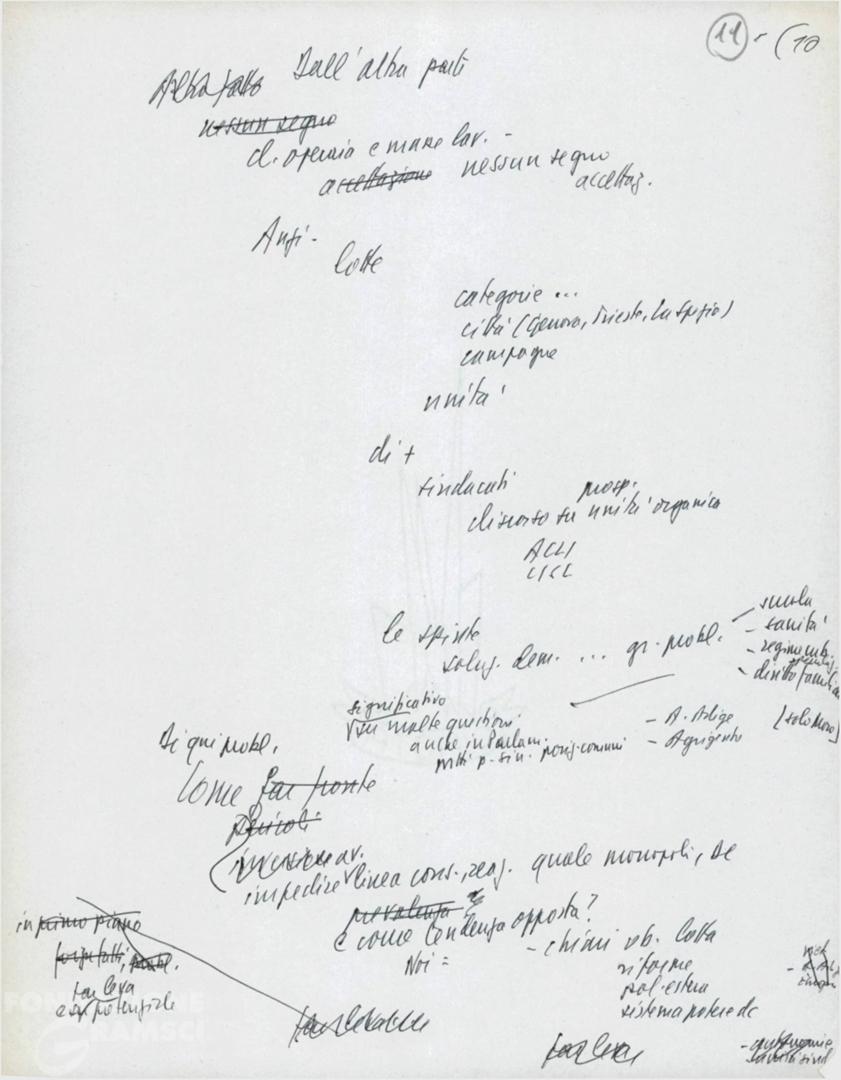 11 - (10
Altro fatto Dall'altra parte
nessun segno
cl. operaia e masse lav. -
accettazione nessun segno
accettaz.
Anzi -
lotte
categorie ...
città (Genova, Trieste, La Spezia)
campagne
unità
di +
sindacati
prosp.
discorso su unità organica
ACLI
CISL
le spinte
soluz. dem. ... gr. probl.
- scuola
- sanità
- regime urb.
- diritto famil
significativo
su molte questioni
anche in Parlam.
partiti p. sin. posiz. comuni
- A. Adige
- Agrigento
[solo Moro]
Di qui probl.
Come far fronte
Pericoli
(inversione av.
impedire linea cons., reaz. quale monopoli, DC
prevalenza
e come tendenza opposta?
Noi =
- chiari ob. lotta
riforme
pol. estera
sistema potere dc
in primo piano
forze fatti,
far leva
e su potenziale
FONDAZIONE
GRAMSCI
far leva
- autonomie